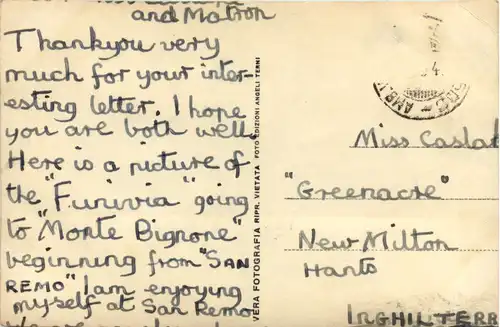 and Matron
Thankyou very
much for your inter-
esting letter. I hope
you are both well.
Here is a picture of
the "Funivia" going
to "Monte Bignone"
beginning from "SAN
REMO" I am enjoying
myself at San Remo
VERA FOTOGRAFIA RIPR. VIETATA FOTO EDIZIONI ANGELI TERNI
Miss Caslak
"Greenacre"
New Milton
Hants
INGHILTERR